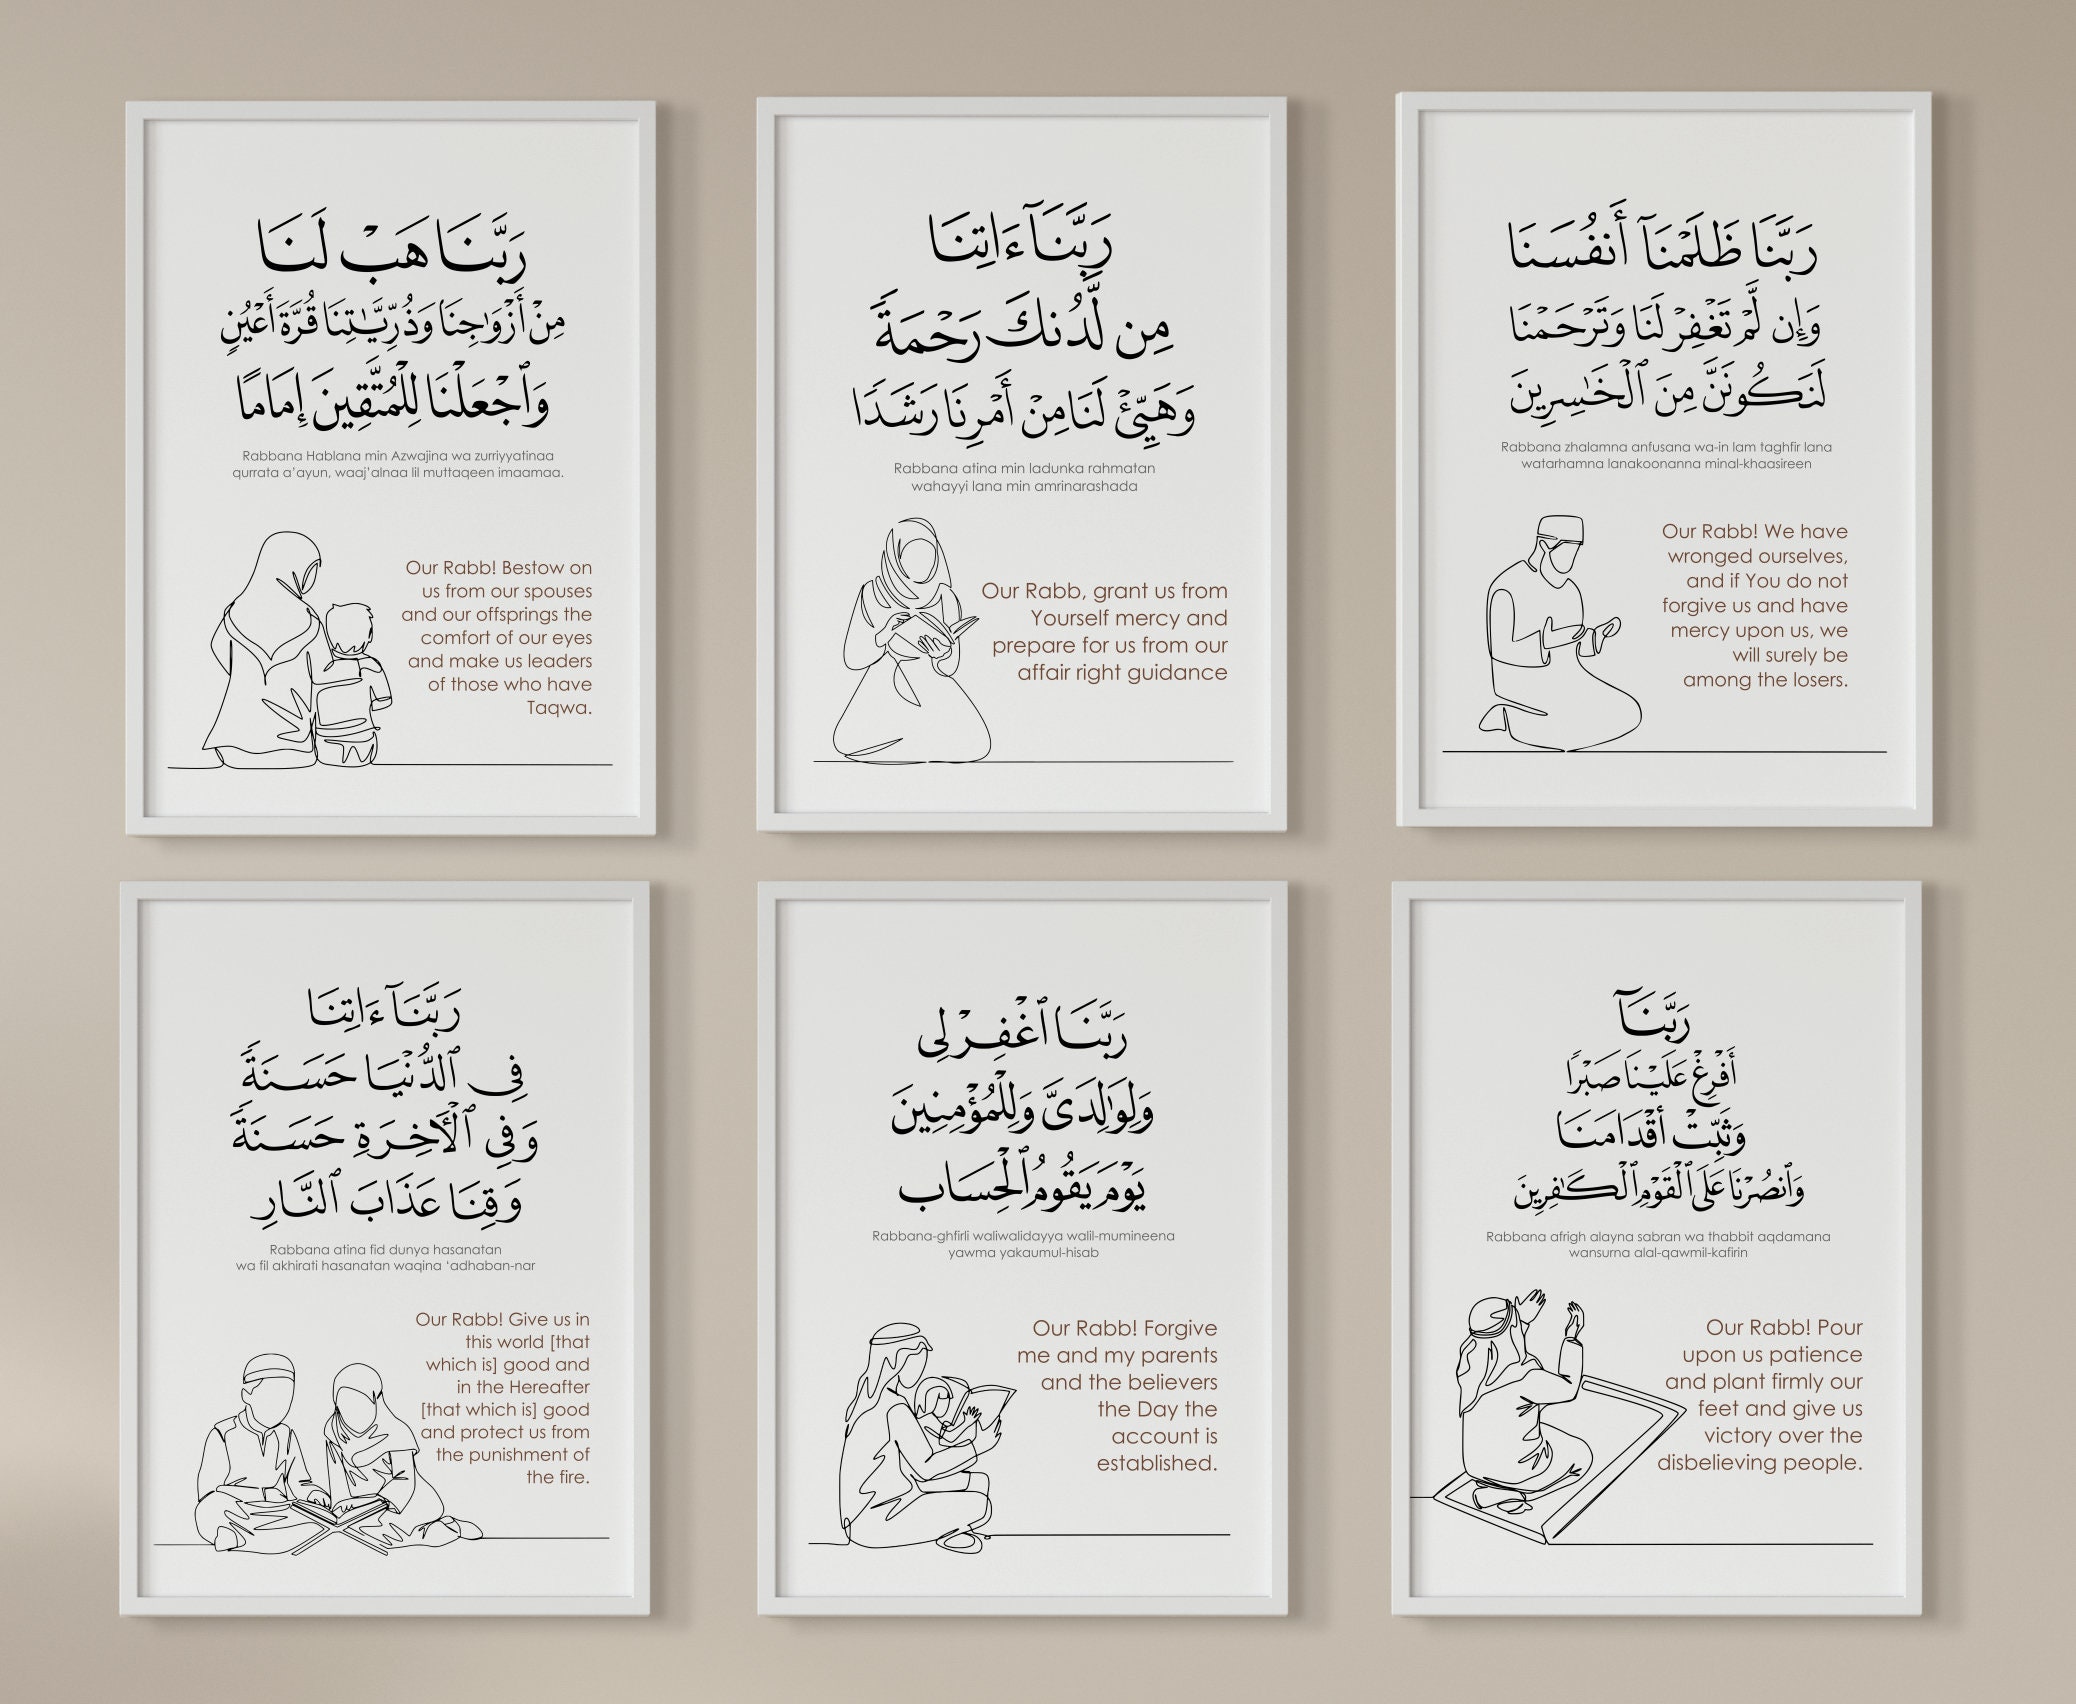 رَبَّنَا هَبْ لَنَا
مِنْ أَزْوَٰجِنَا وَذُرِّيَّـٰتِنَا قُرَّةَ أَعْيُنٍ
وَٱجْعَلْنَا لِلْمُتَّقِينَ إِمَامًا
Rabbana Hablana min Azwajina wa zurriyyatinaa
qurrata a’ayun, waaj’alnaa lil muttaqeen imaamaa.
Our Rabb! Bestow on
us from our spouses
and our offsprings the
comfort of our eyes
and make us leaders
of those who have
Taqwa.
رَبَّنَآ ءَاتِنَا
مِن لَّدُنكَ رَحْمَةً
وَهَيِّئْ لَنَا مِنْ أَمْرِنَا رَشَدًا
Rabbana atina min ladunka rahmatan
wahayyi lana min amrinarashada
Our Rabb, grant us from
Yourself mercy and
prepare for us from our
affair right guidance
رَبَّنَا ظَلَمْنَآ أَنفُسَنَا
وَإِن لَّمْ تَغْفِرْ لَنَا وَتَرْحَمْنَا
لَنَكُونَنَّ مِنَ ٱلْخَـٰسِرِينَ
Rabbana zhalamna anfusana wa-in lam taghfir lana
watarhamna lanakoonanna minal-khaasireen
Our Rabb! We have
wronged ourselves,
and if You do not
forgive us and have
mercy upon us, we
will surely be
among the losers.
رَبَّنَآ ءَاتِنَا
فِى ٱلدُّنْيَا حَسَنَةً
وَفِى ٱلْـَٔاخِرَةِ حَسَنَةً
وَقِنَا عَذَابَ ٱلنَّارِ
Rabbana atina fid dunya hasanatan
wa fil akhirati hasanatan waqina ‘adhaban-nar
Our Rabb! Give us in
this world [that
which is] good and
in the Hereafter
[that which is] good
and protect us from
the punishment of
the fire.
رَبَّنَا ٱغْفِرْ لِى
وَلِوَٰلِدَىَّ وَلِلْمُؤْمِنِينَ
يَوْمَ يَقُومُ ٱلْحِسَاب
Rabbana-ghfirli waliwalidayya walil-mumineena
yawma yakaumul-hisab
Our Rabb! Forgive
me and my parents
and the believers
the Day the
account is
established.
رَبَّنَآ
أَفْرِغْ عَلَيْنَا صَبْرًا
وَثَبِّتْ أَقْدَامَنَا
وَٱنصُرْنَا عَلَى ٱلْقَوْمِ ٱلْكَـٰفِرِينَ
Rabbana afrigh alayna sabran wa thabbit aqdamana
wansurna alal-qawmil-kafirin
Our Rabb! Pour
upon us patience
and plant firmly our
feet and give us
victory over the
disbelieving people.